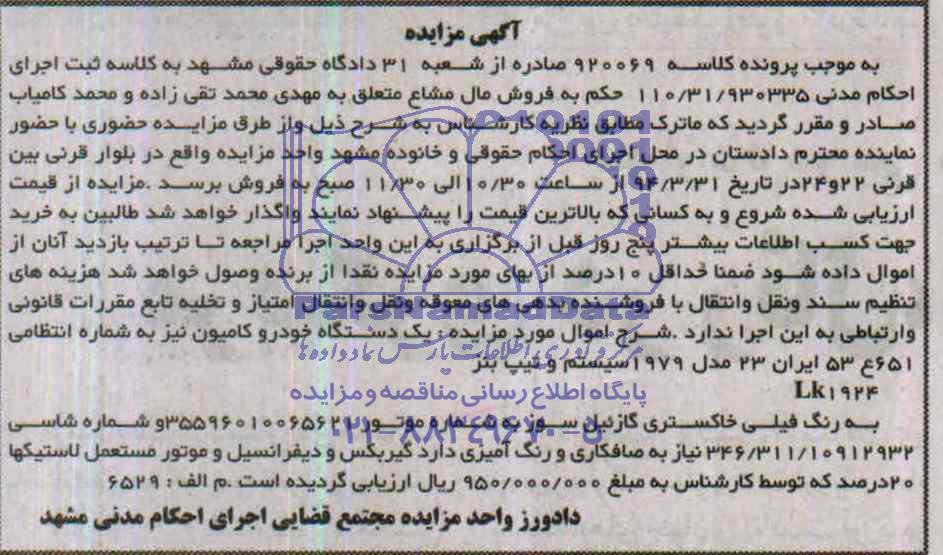 آگهی مزایده
به موجب پرونده کلاسه ۹۲۰۰۶۹ صادره از شعبه ۳۱ دادگاه حقوقی مشهد به کلاسه ثبت اجرای
احکام مدنی ۱۱۰/۳۱/۹۳۰۳۳۵ حکم به فروش مال مشاع متعلق به مهدی محمد تقی زاده و محمد کامیاب
صادر و مقرر گردید که ماترک مطابق نظریه کارشناس به شرح ذیل واز طرق مزایده حضوری با حضور
نماینده محترم دادستان در محل اجرای احکام حقوقی و خانوده مشهد واحد مزایده واقع در بلوار قرنی بین
قرنی ۲۲و۲۴در تاریخ ۹۴/۳/۳۱ از ساعت ۱۰/۳۰الی ۱۱/۳۰ صبح به فروش برسد .مزایده از قیمت
ارزیابی شده شروع و به کسانی که بالاترین قیمت را پیشنهاد نمایند واگذار خواهد شد طالبین به خرید
جهت کسب اطلاعات بیشتر پنج روز قبل از برگزاری به این واحد اجرا مراجعه تا ترتیب بازدید آنان از
اموال داده شود ضمنا حداقل ۱۰درصد از بهای مورد مزایده نقدا از برنده وصول خواهد شد هزینه های
تنظیم سند ونقل وانتقال با فروشنده بدهی های معوقه ونقل وانتقال امتیاز و تخلیه تابع مقررات قانونی
ParsNamadData
وارتباطی به این اجرا ندارد .شرح اموال مورد مزایده : یک دستگاه خودرو کامیون نیز به شماره انتظامی
مرکز فرآوری اطلاعات پارس نماد داده ها
۶۵۱ع ۵۳ ایران ۲۳ مدل ۱۹۷۹سیستم و تیپ بنز
پایگاه اطلاع رسانی مناقصه و مزایده
Lk۱۹۲۴
به رنگ فیلی خاکستری گازئیل سوز به شماره موتور ۳۵۵۹۶۰۱۰۰۶۵۶۲۷و شماره شاسی
۰۲۱-۸۸۳۴۹۶۷۰-۵
۳۴۶/۳۱۱/۱۰۹۱۲۹۳۲ نیاز به صافکاری و رنگ آمیزی دارد گیربکس و دیفرانسیل و موتور مستعمل لاستیکها
۲۰درصد که توسط کارشناس به مبلغ ۹۵۰/۰۰۰/۰۰۰ ریال ارزیابی گردیده است .م الف : ۶۵۲۹
دادورز واحد مزایده مجتمع قضایی اجرای احکام مدنی مشهد